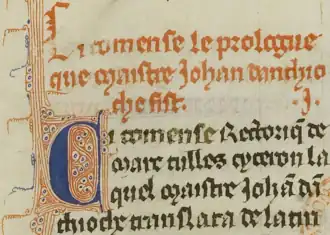 Ci comense le prologue
que maistre Johan danthio
che fist. .I.
Ci comense Rectoriq de
marc tulles cyceron la
quel maistre Johã dã
thioche translata de latin